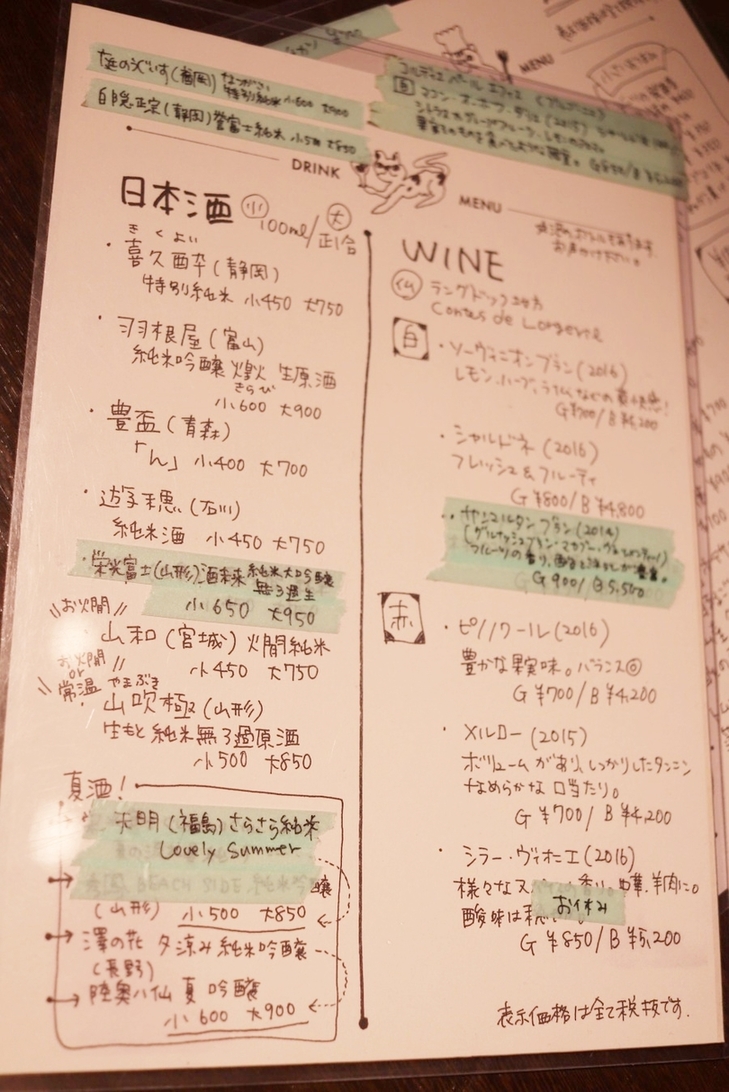 庭のうぐいす(福岡) なつがこい
特別純米 小600 大900
白隠正宗(静岡)誉富士純米 小500 大850
(ブルゴーニュ)
白 マコン・
(2015)
グレープフルーツ、レモン
DRINK
MENU
MENU
日本酒 小 100ml/ 大 正1合
きくよい
・喜久酔(静岡)
特別純米 小450 大750
・羽根屋(富山)
純米吟醸 煌火 生原酒
きらび
小600 大900
・豊盃(青森)
「ん」 小400 大700
・遊穂(石川)
純米酒 小450 大750
・栄光富士(山形)酒未来 純米大吟醸
無ろ過生
小650 大950
\\お火閒//
・山和(宮城) 火閒純米
小450 大750
\\お火閒 or 常温//
やまぶき
・山吹極(山形)
生もと 純米無ろ過原酒
小500 大850
夏酒!
天明(福島)さらさら純米
Lovely Summer
BEACH SIDE 純米吟醸
(山形) 小500 大850
澤の花 夕涼み 純米吟醸
(長野)
陸奥八仙 夏 吟醸
小600 大900
お声かけ下さい。
WINE
仏 ラングドック地方
白
・ソーヴィニオンブラン(2016)
レモン、ハーブ、ライムなどの爽快感!
G¥700/B¥4,200
・シャルドネ(2016)
フレッシュ&フルーティ
G¥800/B¥4,800
サンマルタン ブラン(2014)
フルーツの香り、
G900/B5,500
赤
・ピノノワール(2016)
豊かな果実味。バランス◎
G¥700/B¥4,200
・メルロー(2015)
ボリュームがあり、しっかりしたタンニン
なめらかな口当たり。
G¥700/B¥4,200
・シラー・ヴィオニエ(2016)
様々なス の香り。 羊肉に。
酸味は お休み
G¥850/B¥5,200
表示価格は全て税抜です。